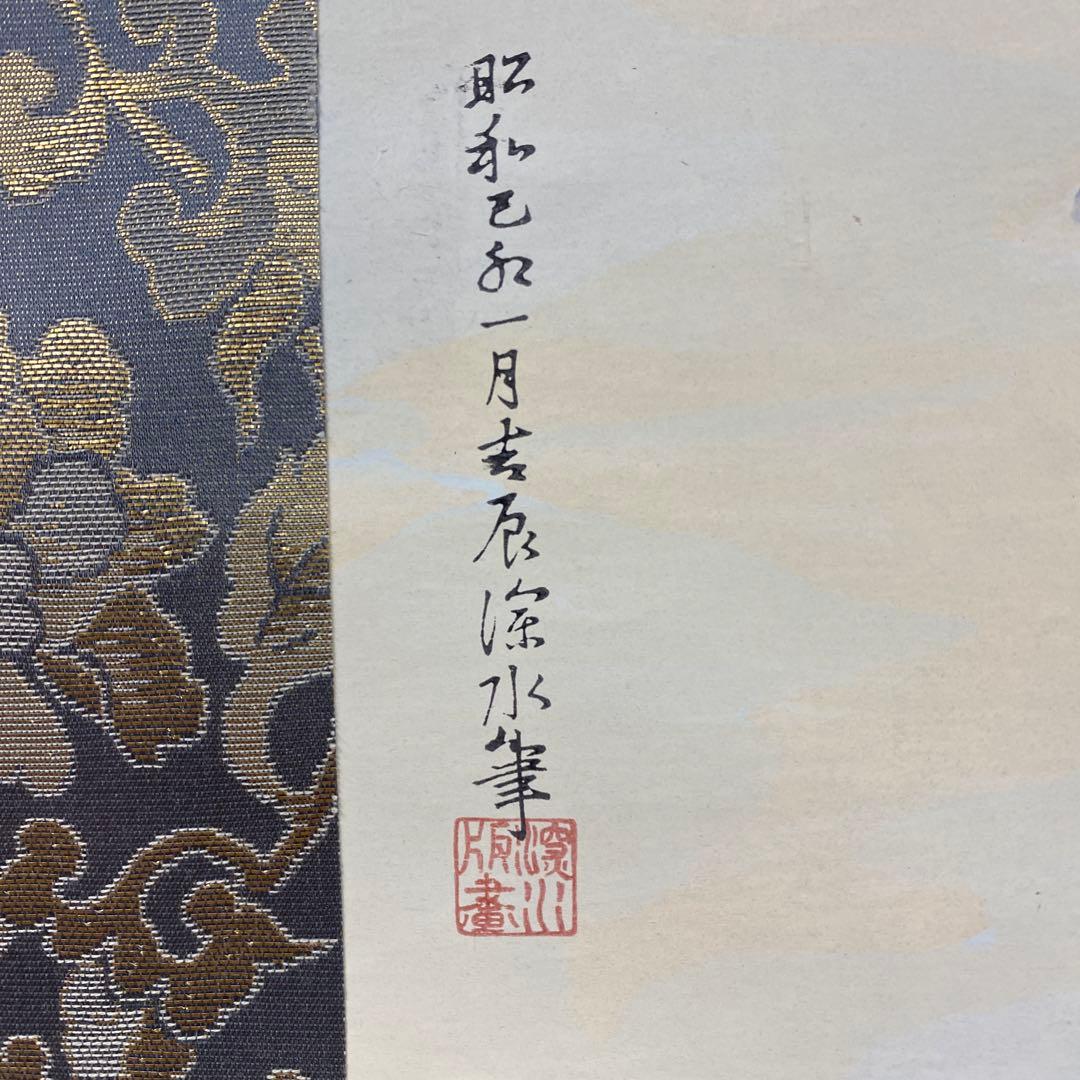 昭和己卯一月吉辰深水筆
深川
版畫